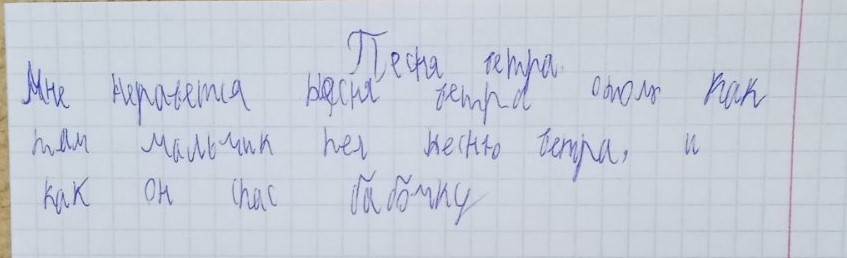 Песня ветра.
Мне неравется песня ветра как
там мальчик пел песню ветра, и
как он спас бабочку